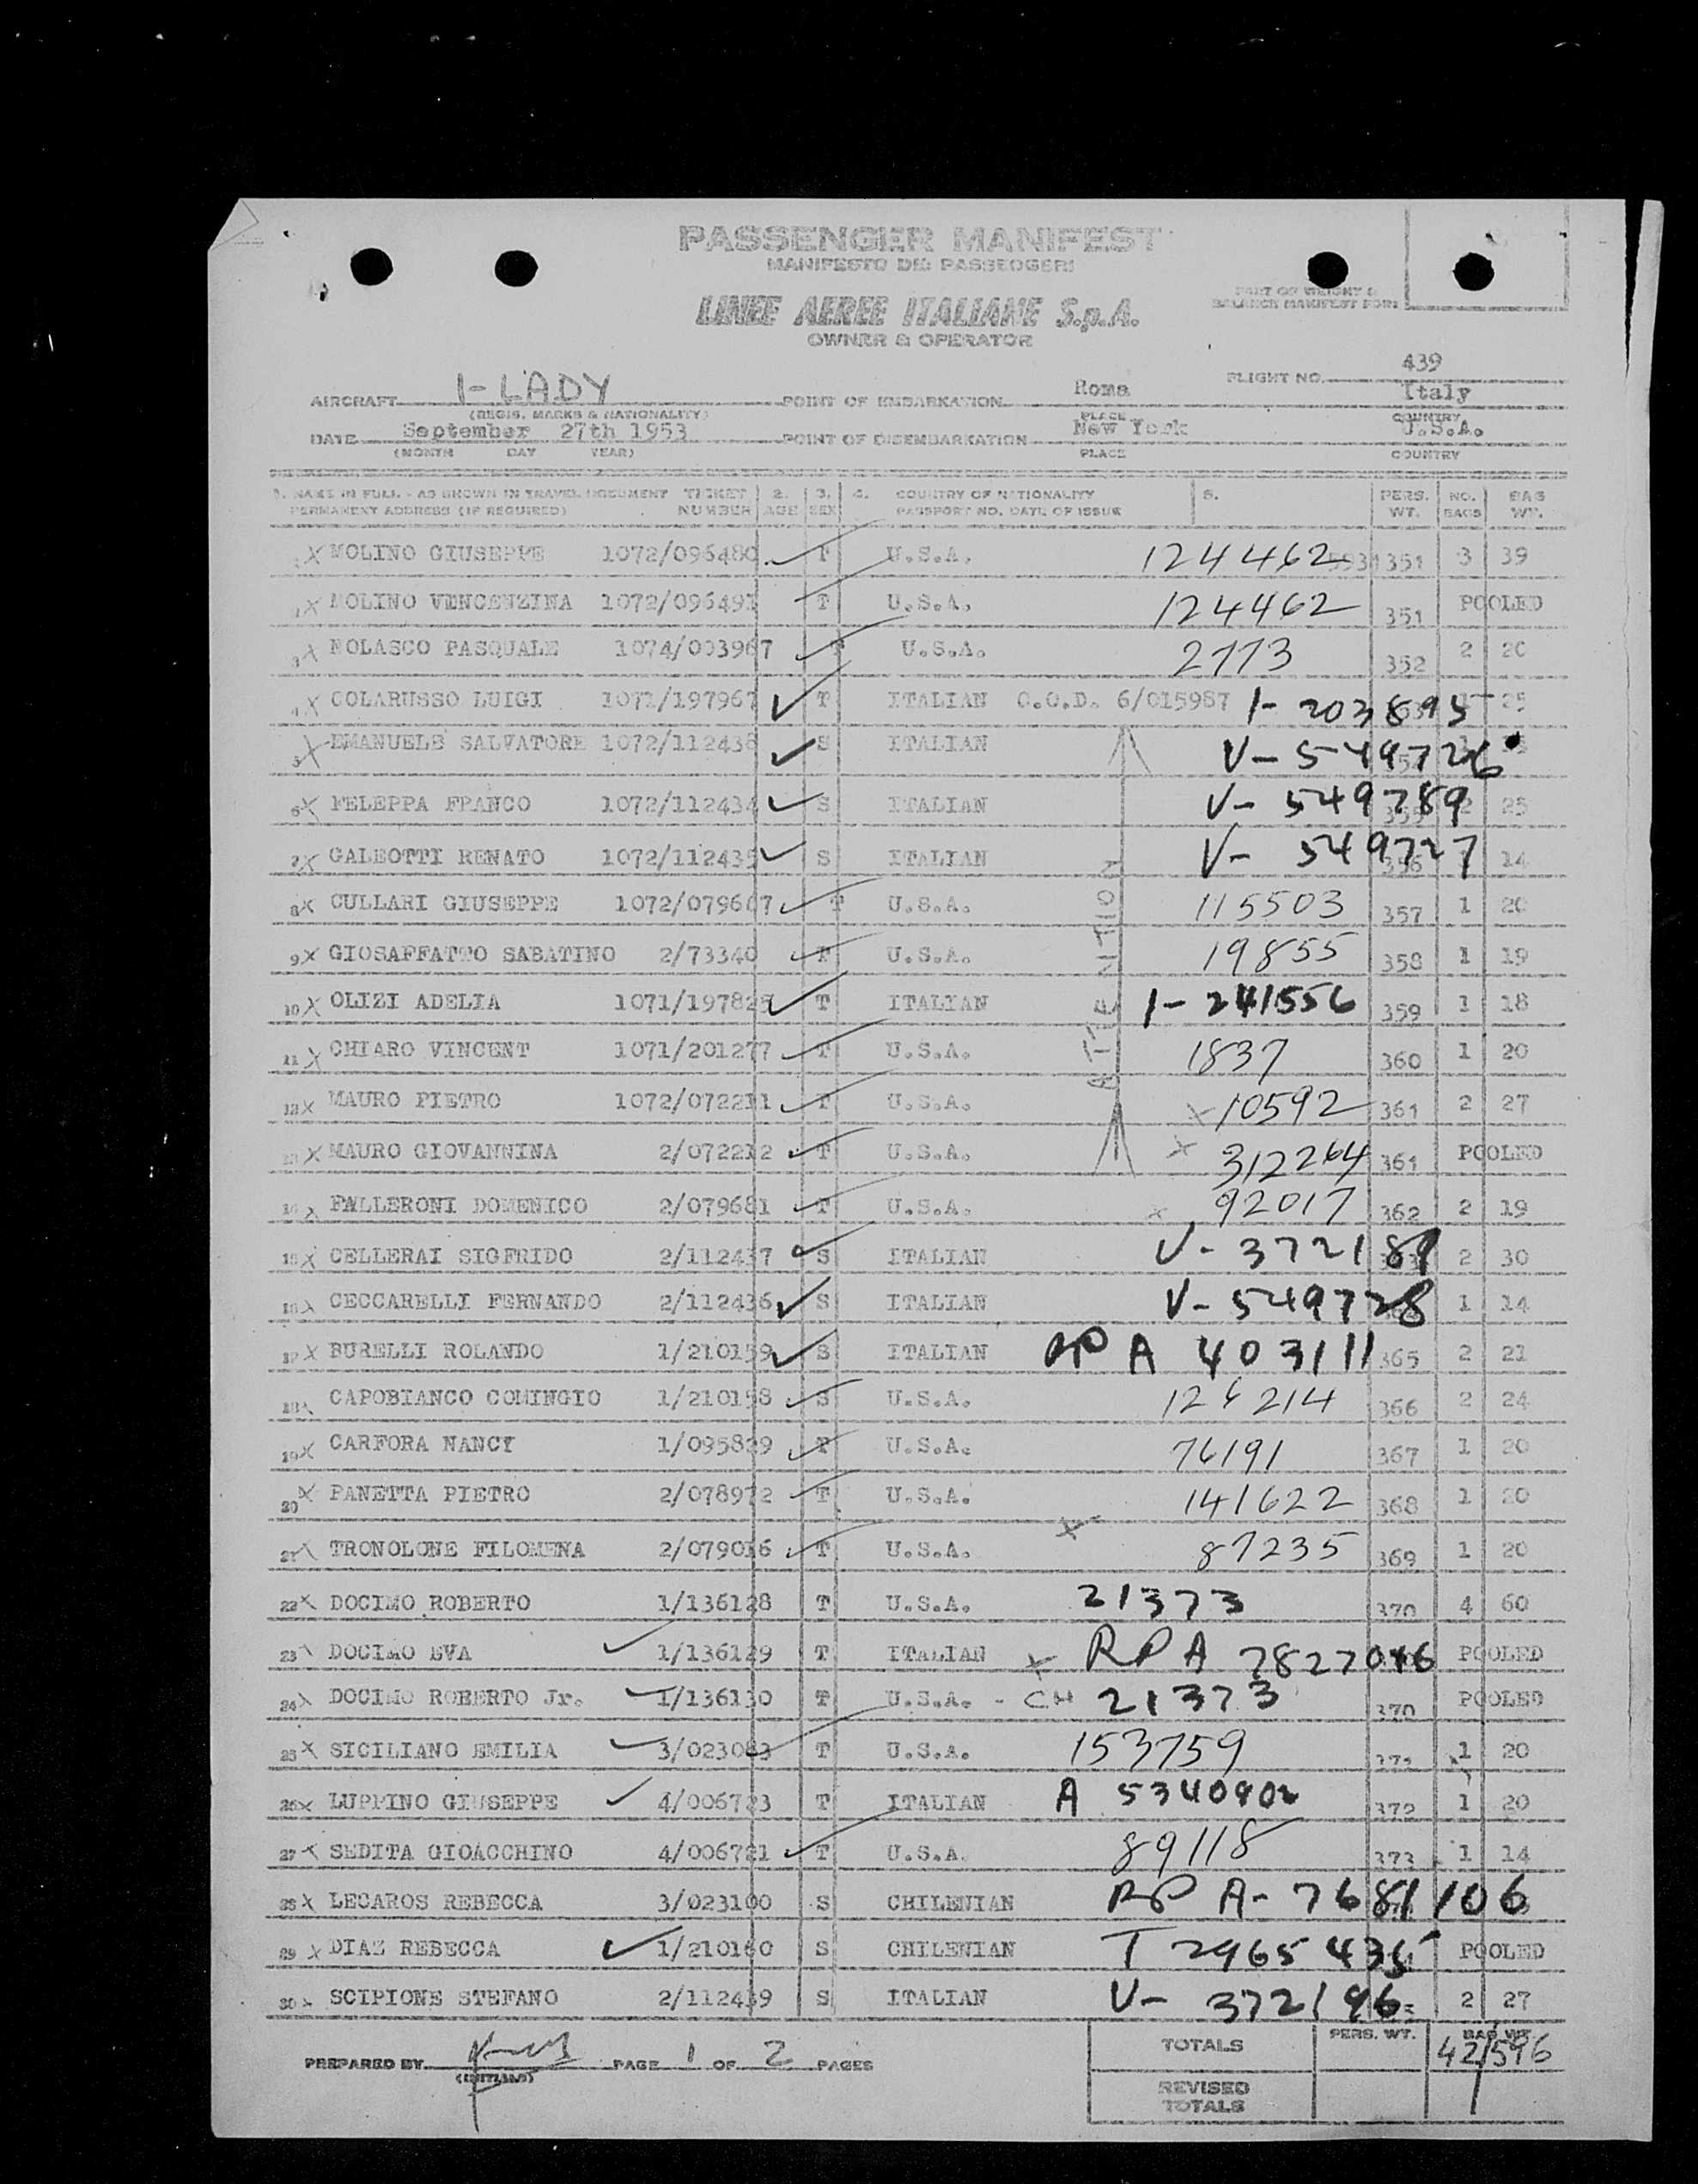 PASSENGER MANIFEST
MANIFESTO DEI PASSEGGERI
PART OF WEIGHT &
BALANCE MANIFEST FORM
LINEE AEREE ITALIANE S.p.A.
OWNER & OPERATOR
AIRCRAFT I-LADY POINT OF EMBARKATION Roma FLIGHT NO. 439 Italy
(REGIS. MARKS & NATIONALITY) PLACE COUNTRY
DATE September 27th 1953 POINT OF DISEMBARKATION New York U.S.A.
(MONTH DAY YEAR) PLACE COUNTRY
1. NAME IN FULL - AS SHOWN IN TRAVEL DOCUMENT TICKET 2. 3. 4. COUNTRY OF NATIONALITY 5. PERS. NO. BAG
PERMANENT ADDRESS (IF REQUIRED) NUMBER AGE SEX PASSPORT NO. DATE OF ISSUE WT. BAGS WT.
1 X MOLINO GIUSEPPE 1072/096480 T U.S.A. 124462 351 3 39
2 X MOLINO VENCENZINA 1072/096491 T U.S.A. 124462 351 POOLED
3 X NOLASCO PASQUALE 1074/003967 T U.S.A. 2773 352 2 20
4 X COLARUSSO LUIGI 1071/197967 T ITALIAN C.O.D. 6/015987 I-203895 25
5 X EMANUELE SALVATORE 1072/112438 S ITALIAN V-549726
6 X FELEPPA FRANCO 1072/112434 S ITALIAN V-549789 355 2 25
7 X GALEOTTI RENATO 1072/112435 S ITALIAN V-549727 356 14
8 X CULLARI GIUSEPPE 1072/079667 T U.S.A. 115503 357 1 20
ATTENTION
9 X GIOSAFFATTO SABATINO 2/73340 T U.S.A. 19855 358 1 19
10 X OLIZI ADELIA 1071/197825 T ITALIAN I-241556 359 1 18
11 X CHIARO VINCENT 1071/201277 T U.S.A. 1837 360 1 20
12 X MAURO PIETRO 1072/072211 T U.S.A. X 10592 361 2 27
13 X MAURO GIOVANNINA 2/072212 T U.S.A. X 312264 361 POOLED
14 X PALLERONI DOMENICO 2/079681 T U.S.A. X 92017 362 2 19
15 X CELLERAI SIGFRIDO 2/112437 S ITALIAN V-372189 2 30
16 X CECCARELLI FERNANDO 2/112436 S ITALIAN V-549728 1 14
17 X BURELLI ROLANDO 1/210159 S ITALIAN RP A 403111 365 2 21
18 X CAPOBIANCO COMINGIO 1/210158 S U.S.A. 126214 366 2 24
19 X CARFORA NANCY 1/095829 T U.S.A. 76191 367 1 20
20 X PANETTA PIETRO 2/078972 T U.S.A. 141622 368 1 20
21 X TRONOLONE FILOMENA 2/079016 T U.S.A. X 87235 369 1 20
22 X DOCIMO ROBERTO 1/136128 T U.S.A. 21373 370 4 60
23 X DOCIMO EVA 1/136129 T ITALIAN X RPA 7827046 POOLED
24 X DOCIMO ROBERTO Jr. 1/136130 T U.S.A. - CH 21373 370 POOLED
25 X SICILIANO EMILIA 3/023083 T U.S.A. 153759 371 1 20
26 X LUPPINO GIUSEPPE 4/006723 T ITALIAN A 5340902 372 1 20
27 X SEDITA GIOACCHINO 4/006721 T U.S.A. 89118 373 1 14
28 X LECAROS REBECCA 3/023100 S CHILENIAN RP A-7681106
29 X DIAZ REBECCA 1/210160 S CHILENIAN T 2965435 POOLED
30 X SCIPIONE STEFANO 2/112439 S ITALIAN V-372196 2 27
PREPARED BY (INITIALS) PAGE 1 OF 2 PAGES TOTALS PERS. WT. BAG WT. 42/596
REVISED
TOTALS